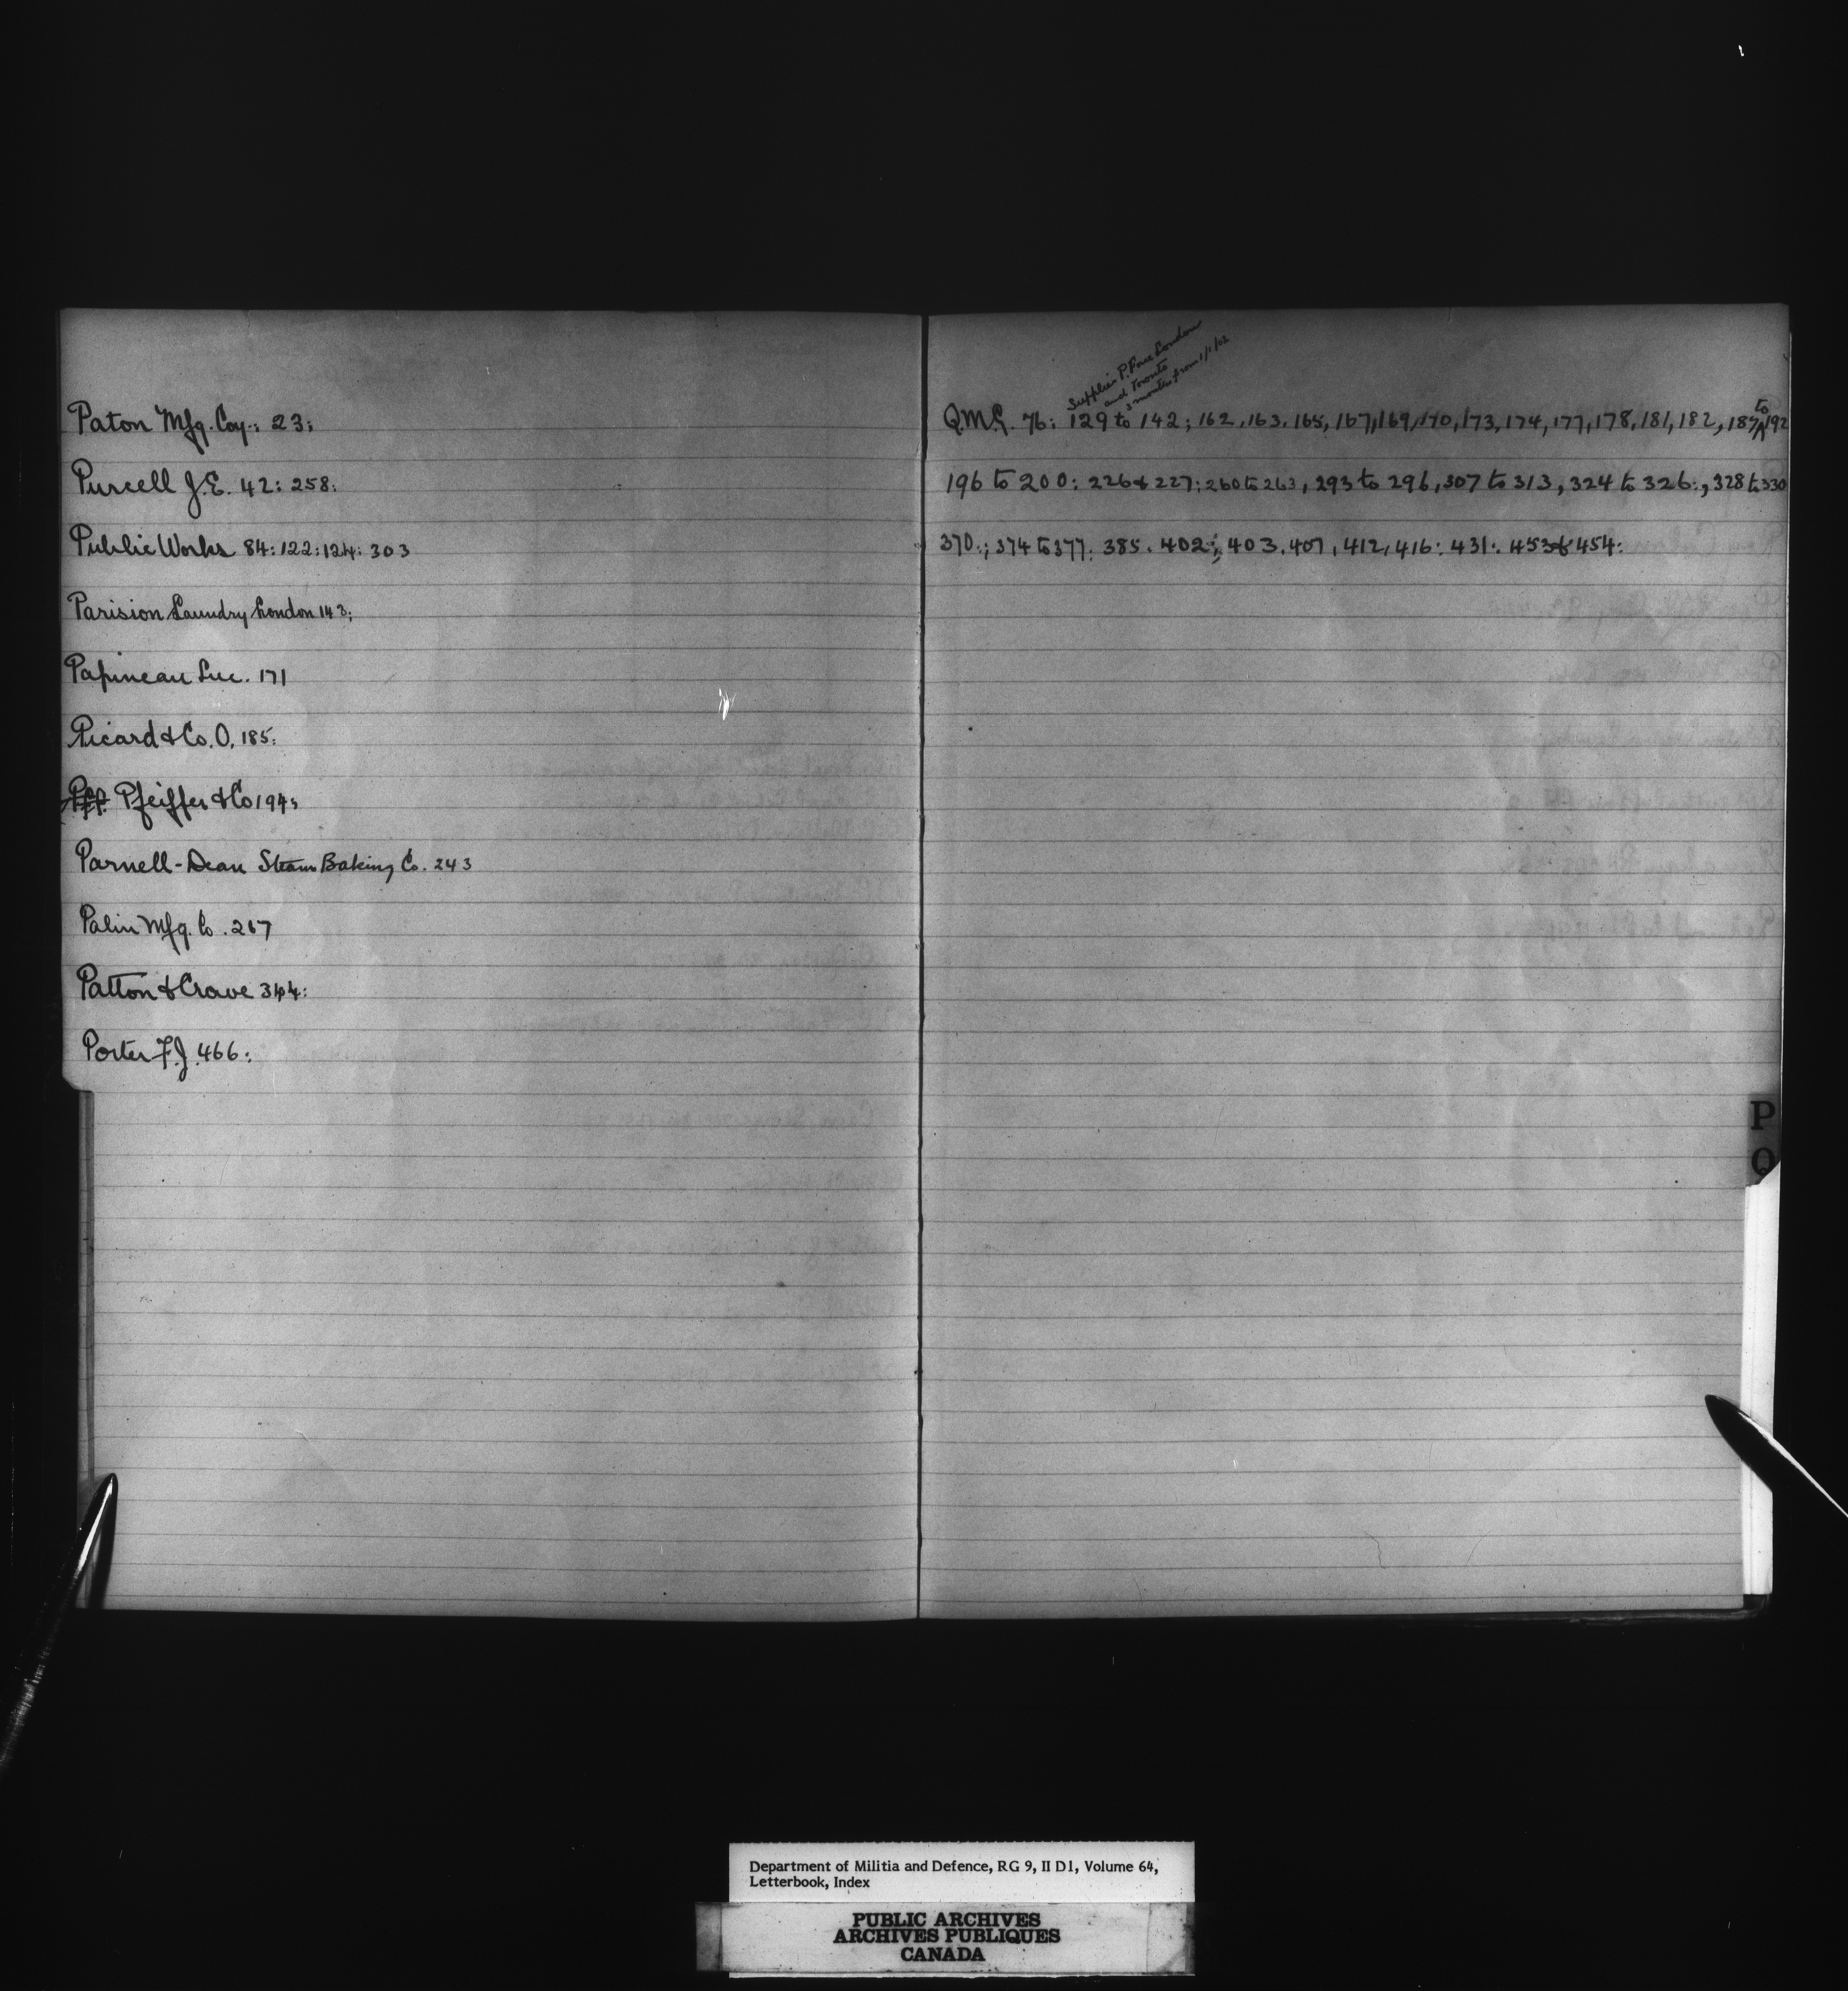 Paton Mfg. Coy.: 23:
Purcell J.E. 42: 258:
Public Works 84: 122: 124: 303
Parision Laundry London 143:
Papineau Luc. 171
Picard & Co. O. 185:
Pff. Pfeiffer & Co 194:
Parnell-Dean Steam Baking Co. 243
Palin Mfg. Co. 267
Patton & Crowe 344:
Porter F.J. 466:
Supplies P. Force London
and Toronto
3 months from 1/1/02
Q.M.G. 76: 129 to 142; 162, 163, 165, 167, 169, 170, 173, 174, 177, 178, 181, 182, 187 to 192
196 to 200: 226 & 227: 260 to 263, 293 to 296, 307 to 313, 324 to 326:, 328 to 330
370:; 374 to 377: 385. 402:; 403. 407, 412, 416: 431: 453 & 454:
P
Q
Department of Militia and Defence, RG 9, II D1, Volume 64,
Letterbook, Index
PUBLIC ARCHIVES
ARCHIVES PUBLIQUES
CANADA